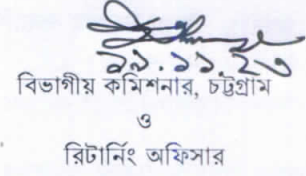 ২৯.১১.২৩
বিভাগীয় কমিশনার, চট্টগ্রাম
ও
রিটার্নিং অফিসার